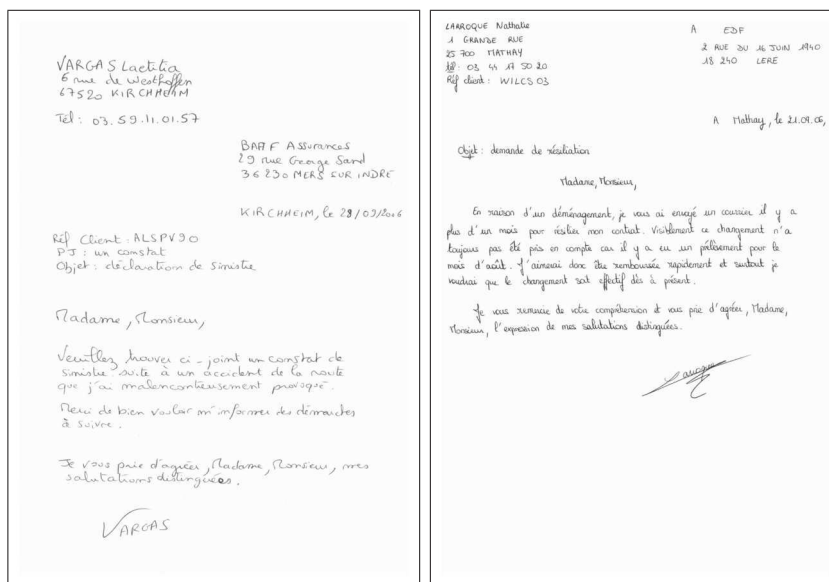 VARGAS Laetitia
6 rue de Westhoffen
67520 KIRCHHEIM
Tél : 03.59.11.01.57
BAFF Assurances
29 rue George Sand
36230 MERS SUR INDRE
KIRCHHEIM, le 29/09/2006
Réf Client : ALSPV90
PJ : un constat
Objet : déclaration de sinistre
Madame, Monsieur,
Veuillez trouver ci-joint un constat de
sinistre suite à un accident de la route
que j'ai malencontreusement provoqué.
Merci de bien vouloir m'informer des démarches
à suivre.
Je vous prie d'agréer, Madame, Monsieur, mes
salutations distinguées.
VARGAS
LARROQUE Nathalie
1 GRANDE RUE
25 700 MATHAY
tél : 03 44 17 50 20
Réf client : WILCS 03
A EDF
2 RUE DU 16 JUIN 1940
18 240 LERE
A Mathay, le 21.09.06,
Objet : demande de résiliation
Madame, Monsieur,
En raison d'un déménagement, je vous ai envoyé un courrier il y a
plus d'un mois pour résilier mon contrat. Visiblement ce changement n'a
toujours pas été pris en compte car il y a eu un prélèvement pour le
mois d'août. J'aimerai donc être remboursée rapidement et surtout je
voudrai que le changement soit effectif dès à présent.
Je vous remercie de votre compréhension et vous prie d'agréer, Madame,
Monsieur, l'expression de mes salutations distinguées.